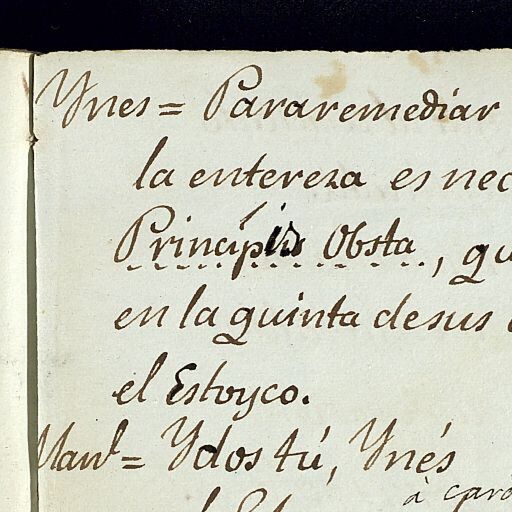 Ynes = Pararemediar
la entereza es nec
Princípiis Obsta, qu
en la quinta desus
el Estoyco.
Man.l = Ydos tú, Ynés
à